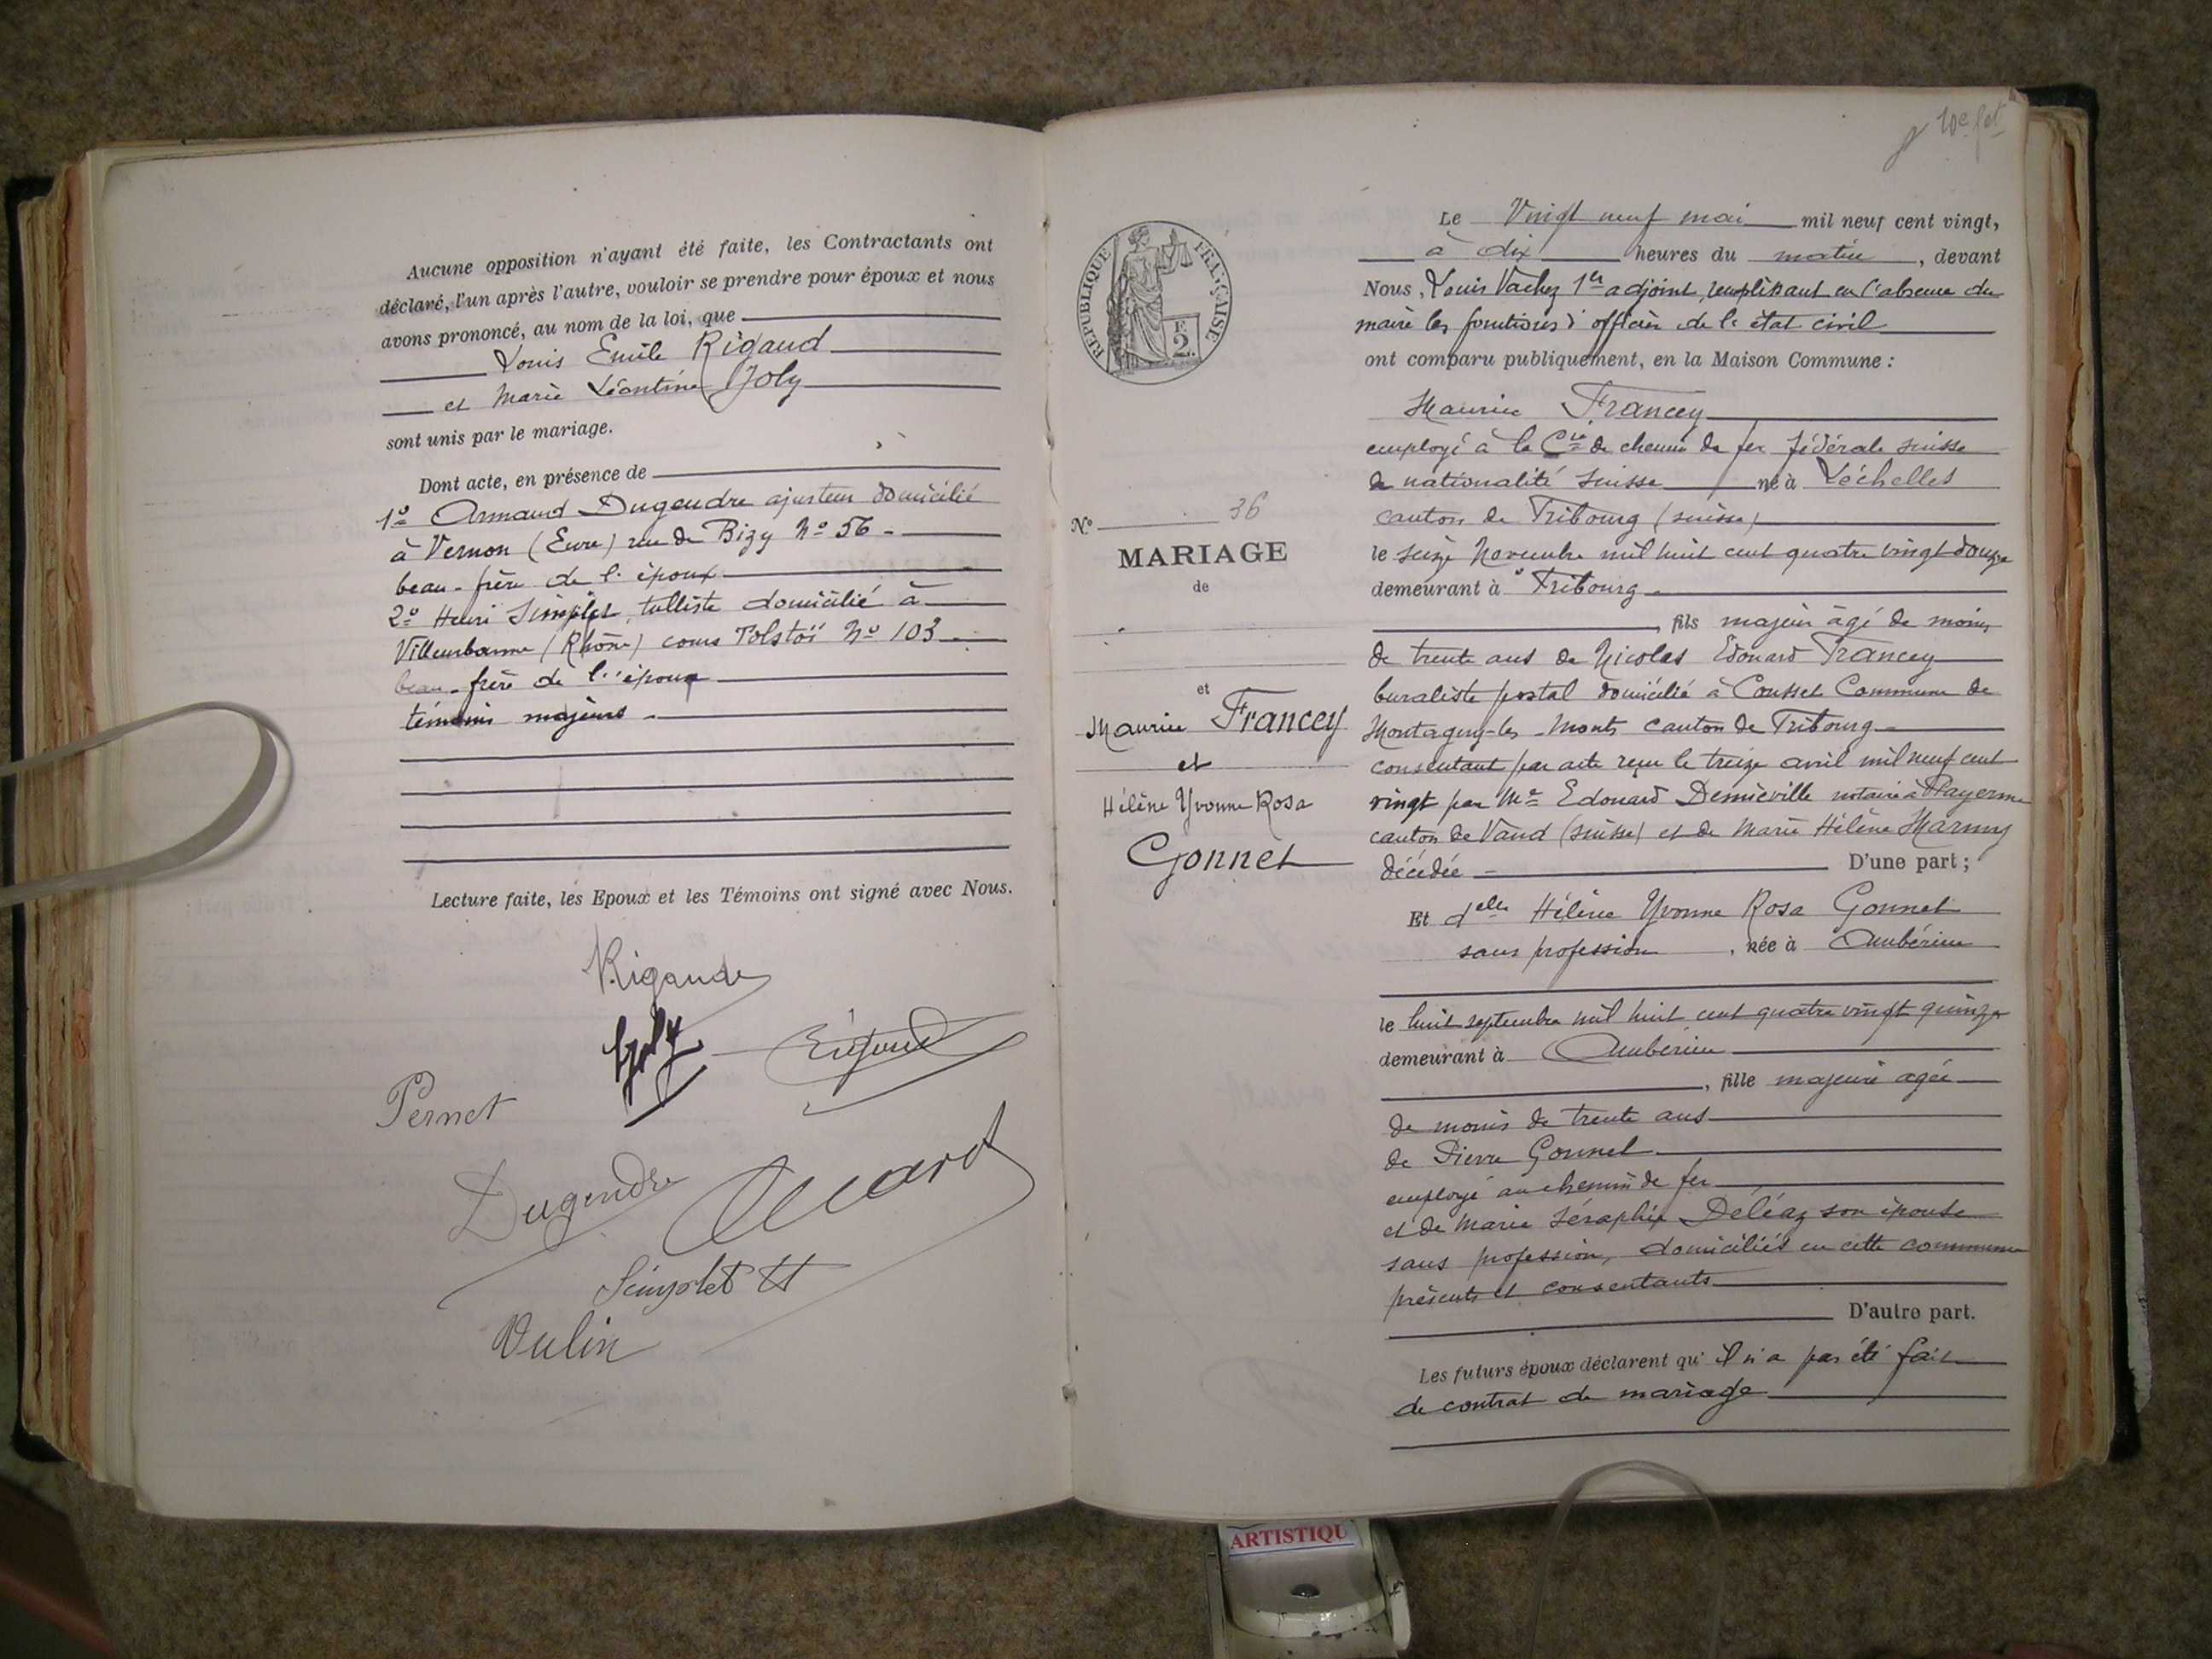 Aucune opposition n'ayant été faite, les Contractants ont
déclaré, l'un après l'autre, vouloir se prendre pour époux et nous
avons prononcé, au nom de la loi, que
Louis Emile Rigaud
et Marie Léontine Joly
sont unis par le mariage.
Dont acte, en présence de
1º Armand Dugendre ajusteur domicilié
à Vernon (Eure) rue de Bizy Nº 56
beau-frère de l'époux
2º Henri tulliste domicilié à
Villeurbanne (Rhône) cours Tolstoï Nº 103
beau-frère de l'époux
témoins majeurs
Lecture faite, les Epoux et les Témoins ont signé avec Nous.
Rigaud
Joly
Pernet
Dugendre
Vulin
REPUBLIQUE FRANÇAISE
F.
2.
Nº 36
MARIAGE
de
et
Maurice Francey
et
Hélène Yvonne Rosa
Gonnet
Le Vingt neuf mai mil neuf cent vingt,
à dix heures du matin, devant
Nous, Louis Vachez 1er adjoint, remplissant en l'absence du
maire les fonctions d'officier de l'état civil
ont comparu publiquement, en la Maison Commune :
Maurice Francey
employé à la Cie de chemin de fer fédérale suisse
de nationalité suisse né à Léchelles
canton de Fribourg (suisse)
le seize Novembre mil huit cent quatre vingt douze
demeurant à Fribourg
, fils majeur âgé de moins
de trente ans de Nicolas Edouard Francey
buraliste postal domicilié à Cousset Commune de
Montagny-les-Monts canton de Fribourg
consentant par acte reçu le treize avril mil neuf cent
vingt par Me Edouard Demiéville notaire à Payerne
canton de Vaud (suisse) et de Marie Hélène
décédée D'une part ;
Et delle Hélène Yvonne Rosa Gonnet
sans profession, née à Ambérieu
le huit septembre mil huit cent quatre vingt quinze
demeurant à Ambérieu
, fille majeure agée
de moins de trente ans
de Pierre Gonnet
employé au chemin de fer
et de Marie Séraphie Déléaz son épouse
sans profession, domiciliés en cette commune
présents et consentants
D'autre part.
Les futurs époux déclarent qu'il n'a pas été fait
de contrat de mariage
ARTISTIQU